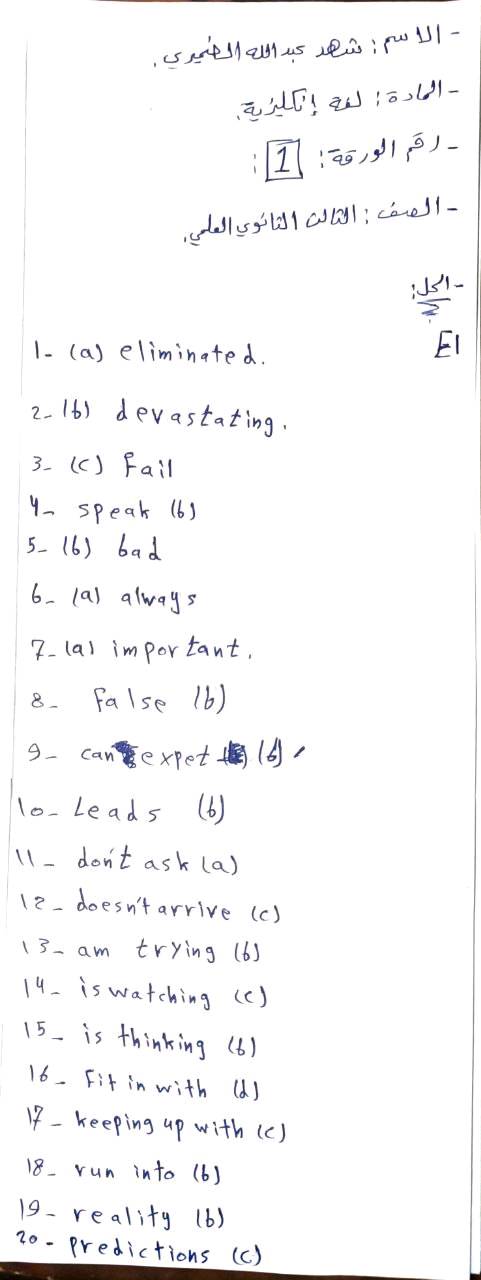 - الاسم: شهد عبد الله الضميري.
- المادة: لغة إنكليزية.
- رقم الورقة: 1:
- الصف: الثالث الثانوي العلمي.
- الحل:
E1
1- (a) eliminated.
2- (b) devastating.
3- (c) Fail
4- speak (b)
5- (b) bad
6- (a) always
7- (a) important.
8- False (b)
9- can expet (b)
10- Leads (b)
11- don't ask (a)
12- doesn't arrive (c)
13- am trying (b)
14- is watching (c)
15- is thinking (b)
16- Fit in with (d)
17- keeping up with (c)
18- run into (b)
19- reality (b)
20- predictions (c)